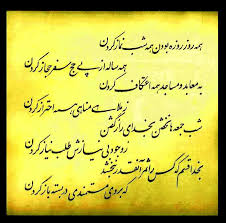 همه روز روزه بودن همه شب نماز کردن
همه ساله از پی حج سفر حجاز کردن
به معابد و مساجد همه اعتکاف کردن
ز ملاهی و مناهی همه احتراز کردن
شب جمعه ها نخفتن بخدای راز گفتن
ز وجود بی نیازش طلب نیاز کردن
بخدا قسم که کس را ثمر آنقدر نبخشد
که بروی مستمندی در بسته باز کردن